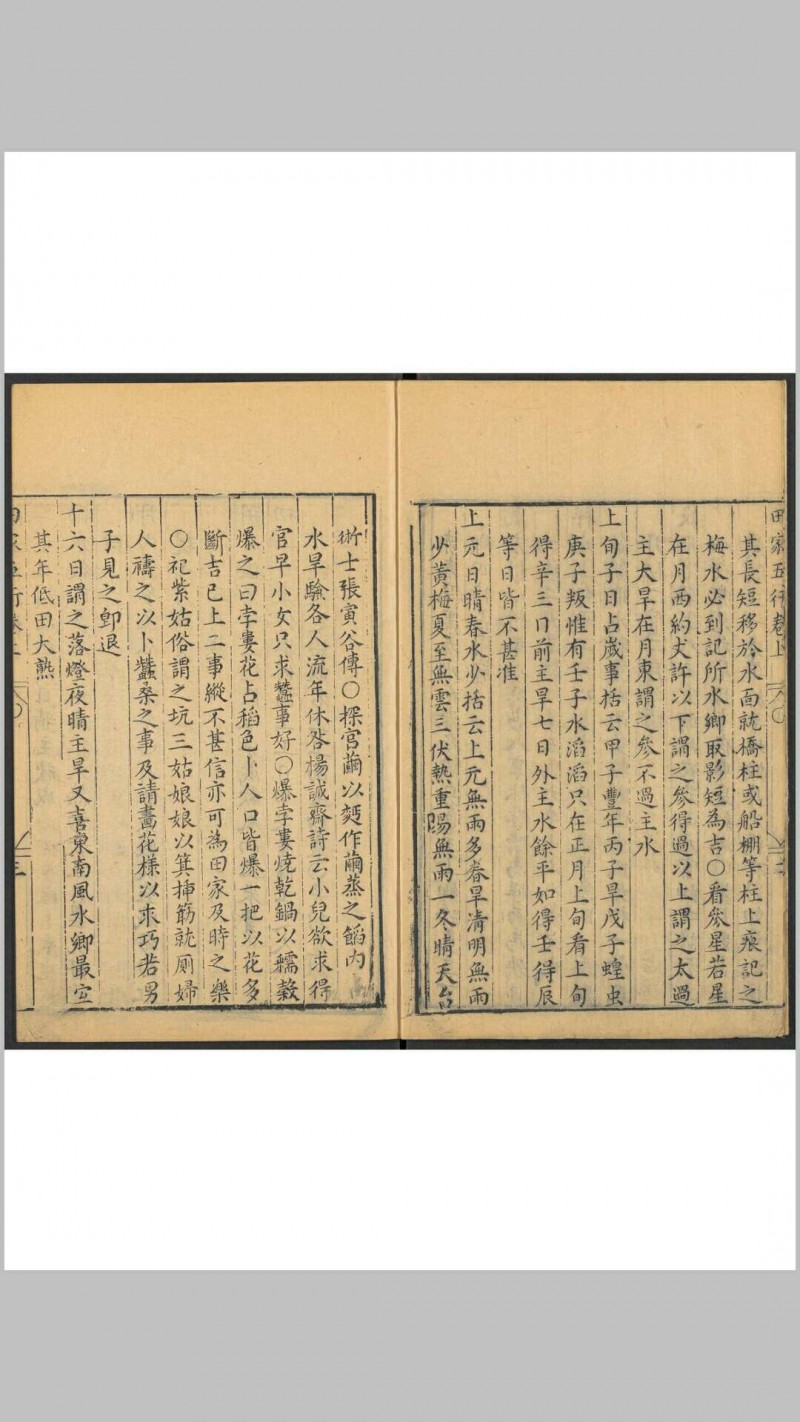 田家五行卷上
其長短移於水面就橋柱或船棚等柱上痕記之
梅水必到記所水鄉取影短為吉○看參星若星
在月西約丈許以下謂之參得過以上謂之太過
主大旱在月東謂之參不過主水
上旬子日占歲事括云甲子豐年丙子旱戊子蝗虫
庚子叛惟有壬子水滔滔只在正月上旬看上旬
得辛三日前主旱七日外主水餘平如得壬得辰
等日皆不甚准
上元日晴春水少括云上元無雨多春旱清明無雨
少黃梅夏至無雲三伏熱重陽無雨一冬晴天台
術士張寅谷傳○探官繭以麪作繭蒸之餡內
水旱驗各人流年休咎楊誠齋詩云小兒欲求得
官早小女只求蠶事好○爆孛婁燒乾鍋以糯穀
爆之曰孛婁花占稻色卜人口皆爆一把以花多
斷吉已上二事縱不甚信亦可為田家及時之樂
○祀紫姑俗謂之坑三姑娘娘以箕揷筯就厠婦
人禱之以卜蠶桑之事及請畫花樣以求巧若男
子見之卽退
十六日謂之落燈夜晴主旱又喜東南風水鄉最宜
其年低田大熟
田家五行卷上